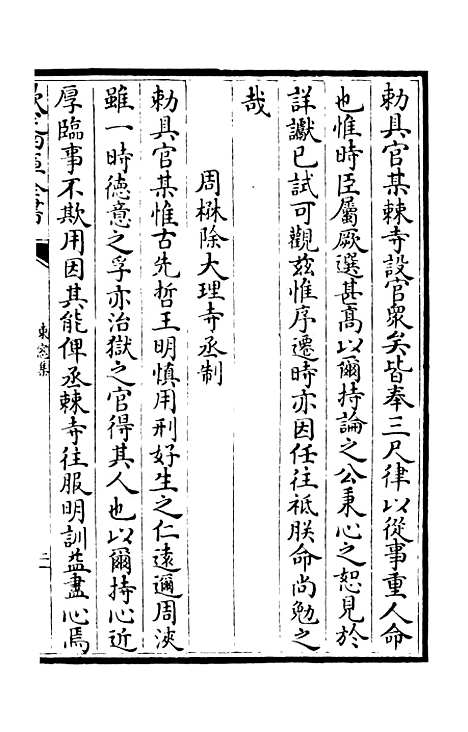 勅具官某棘寺設官衆矣皆奉三尺律以從事重人命
也惟時臣屬厥選甚髙以爾持論之公秉心之恕見於
詳讞已試可觀兹惟序遷時亦因任往祗朕命尚勉之
哉
周楙除大理寺丞制
勅具官某惟古先哲王明慎用刑好生之仁逺邇周浹
雖一時德意之孚亦治獄之官得其人也以爾持心近
厚臨事不欺用因其能俾丞棘寺往服明訓益盡心焉
欽定四庫全書
東窻集